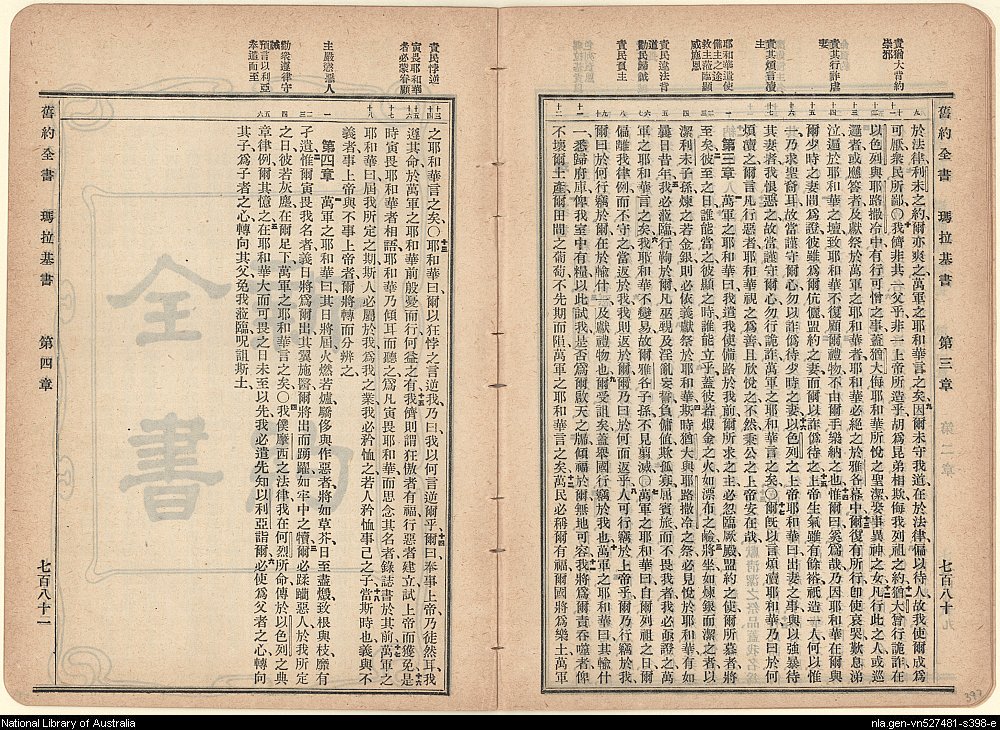 舊約全書 瑪拉基書 第三章 七百八十
責猶大背約
崇邪
責其行詐虐
妻
責其煩言瀆
主
耶和華遣使
備主之途
救主蒞臨顯
威施恩
責民違法背
道
勸民歸誠
責民負主
於法律利未之約爾亦爽之萬軍之耶和華言之矣因爾未守我道在於法律偏以待人故我使爾成爲
可厭衆民所鄙〇我儕非共一父乎非一上帝所造乎胡爲昆弟相欺侮我列祖之約猶大嘗行詭詐在
以色列與耶路撒冷中有行可憎之事蓋猶大侮耶和華所悅之聖潔娶事異神之女凡行此之人或巡
邏者或應答者及獻祭於萬軍之耶和華者耶和華必絕之於雅各幕中爾復有所行卽使哀哭歎息涕
泣遍於耶和華之壇致耶和華不復顧爾禮物不由爾手樂納之也惟爾曰奚爲哉乃因耶和華在爾與
爾少時之妻間爲證彼雖爲爾伉儷盟約之妻而爾以詐僞待之上帝生氣雖有餘裕祇造一人何以惟
一乃求聖裔耳故當謹守爾心勿以詐僞待少時之妻以色列之上帝耶和華曰出妻之事與以強暴待
其妻者我恨惡之故當謹守爾心勿行詭詐萬軍之耶和華言之矣〇爾旣以言煩瀆耶和華乃曰於何
煩瀆之爾言凡行惡者耶和華視之爲善且欣悅之不然秉公之上帝安在哉
第三章 萬軍之耶和華曰我遣我使備路於我前爾所求之主必忽臨厥殿盟約之使爾所慕者將
至矣彼至之日誰能當之彼顯之時誰能立乎蓋彼若煅金之火如漂布之鹼將坐如煉銀而潔之者以
潔利未子孫煉之若金銀則必依義獻祭於耶和華斯時猶大與耶路撒冷之祭必見悅於耶和華有如
曩日昔年我必蒞臨行鞫於爾凡巫覡及淫亂妄誓負傭値欺孤寡屈賓旅而不畏我者我必亟證之萬
軍之耶和華言之矣我耶和華不變易故爾雅各子孫不見翦滅〇萬軍之耶和華曰自爾列祖之日爾
偏離我律例而不守之當返於我我則返於爾爾乃曰於何而返乎人可行竊於上帝乎爾乃行竊於我
爾曰於何行竊於爾在於輸什一及獻禮物也爾受詛矣蓋舉國行竊於我也萬軍之耶和華曰其輸什
一悉歸府庫俾我室中有糧以此試我是否爲爾啟天之牖傾福於爾無地可容我將爲爾責吞噬者俾
不壞爾土產爾田間之葡萄不先期而隕萬軍之耶和華言之矣萬民必稱爾有福爾國將爲樂土萬軍
舊約全書 瑪拉基書 第四章 七百八十一
責民悖逆
寅畏耶和華
者必蒙眷顧
主嚴懲惡人
勸衆遵律守
誡
預言以利亞
奉遣而至
之耶和華言之矣〇耶和華曰爾以狂悖之言逆我乃曰我以何言逆爾乎爾曰奉事上帝乃徒然耳我
遵其命於萬軍之耶和華前殷憂而行何益之有我儕則謂狂傲者有福行惡者建立試上帝而獲免是
時寅畏耶和華者相語耶和華乃傾耳而聽之爲凡寅畏耶和華而思念其名者錄誌書於其前萬軍之
耶和華曰屆我所定之期斯人必屬於我爲我之業我必矜恤之若人矜恤事己之子當斯時也義與不
義者事上帝與不事上帝者爾將轉而分辨之
第四章 萬軍之耶和華曰其日將屆火燃若爐驕侈與作惡者將如草芥日至盡燬致根與枝靡有
孑遺惟爾寅畏我名者義日將爲爾出其翼施醫爾將出而踴躍如牢中之犢爾必蹂躪惡人於我所定
之日彼若灰塵在爾足下萬軍之耶和華言之矣〇我僕摩西之法律我在何烈所命傳於以色列之典
章律例爾其憶之在耶和華大而可畏之日未至以先我必遣先知以利亞詣爾彼使爲父者之心轉向
其子爲子者之心轉向其父免我蒞臨呪詛斯土
全
書
392
National Library of Australia
nla.gen-vn527481-s398-e